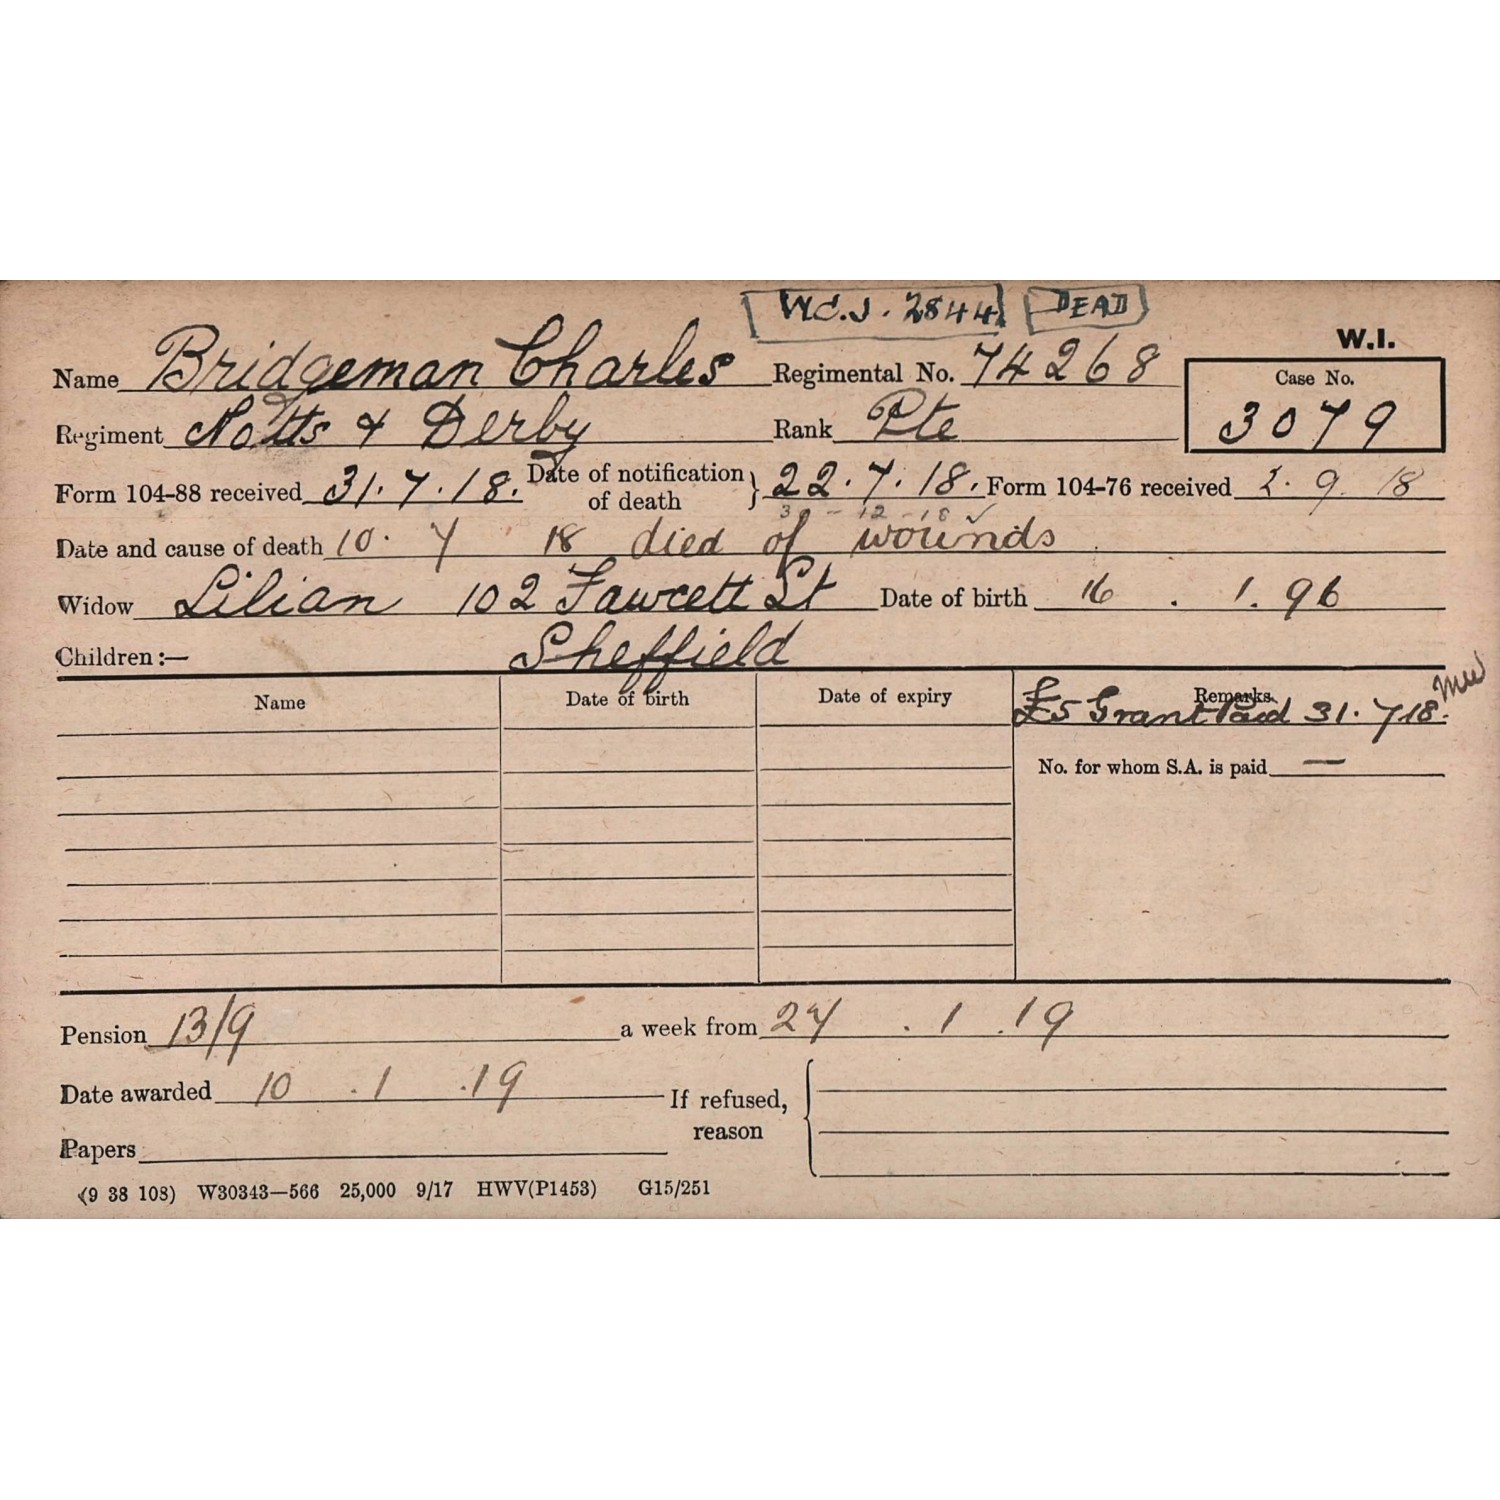 W.C.J. 2844 DEAD
W.I.
Name Bridgeman Charles Regimental No. 74268 Case No.
Regiment Notts & Derby Rank Pte 3079
Form 104-88 received 31.7.18. Date of notification of death } 22.7.18. Form 104-76 received 2.9.18
30-12-18 ✓
Date and cause of death 10.7 18 died of wounds
Widow Lilian 102 Fawcett St Date of birth 16.1.96
Children:— Sheffield
Name Date of birth Date of expiry Remarks
£5 Grant Paid 31.7.18.
No. for whom S.A. is paid —
Pension 13/9 a week from 27.1.19
Date awarded 10.1.19 If refused, reason {
Papers
(9 38 108) W30343—566 25,000 9/17 HWV(P1453) G15/251